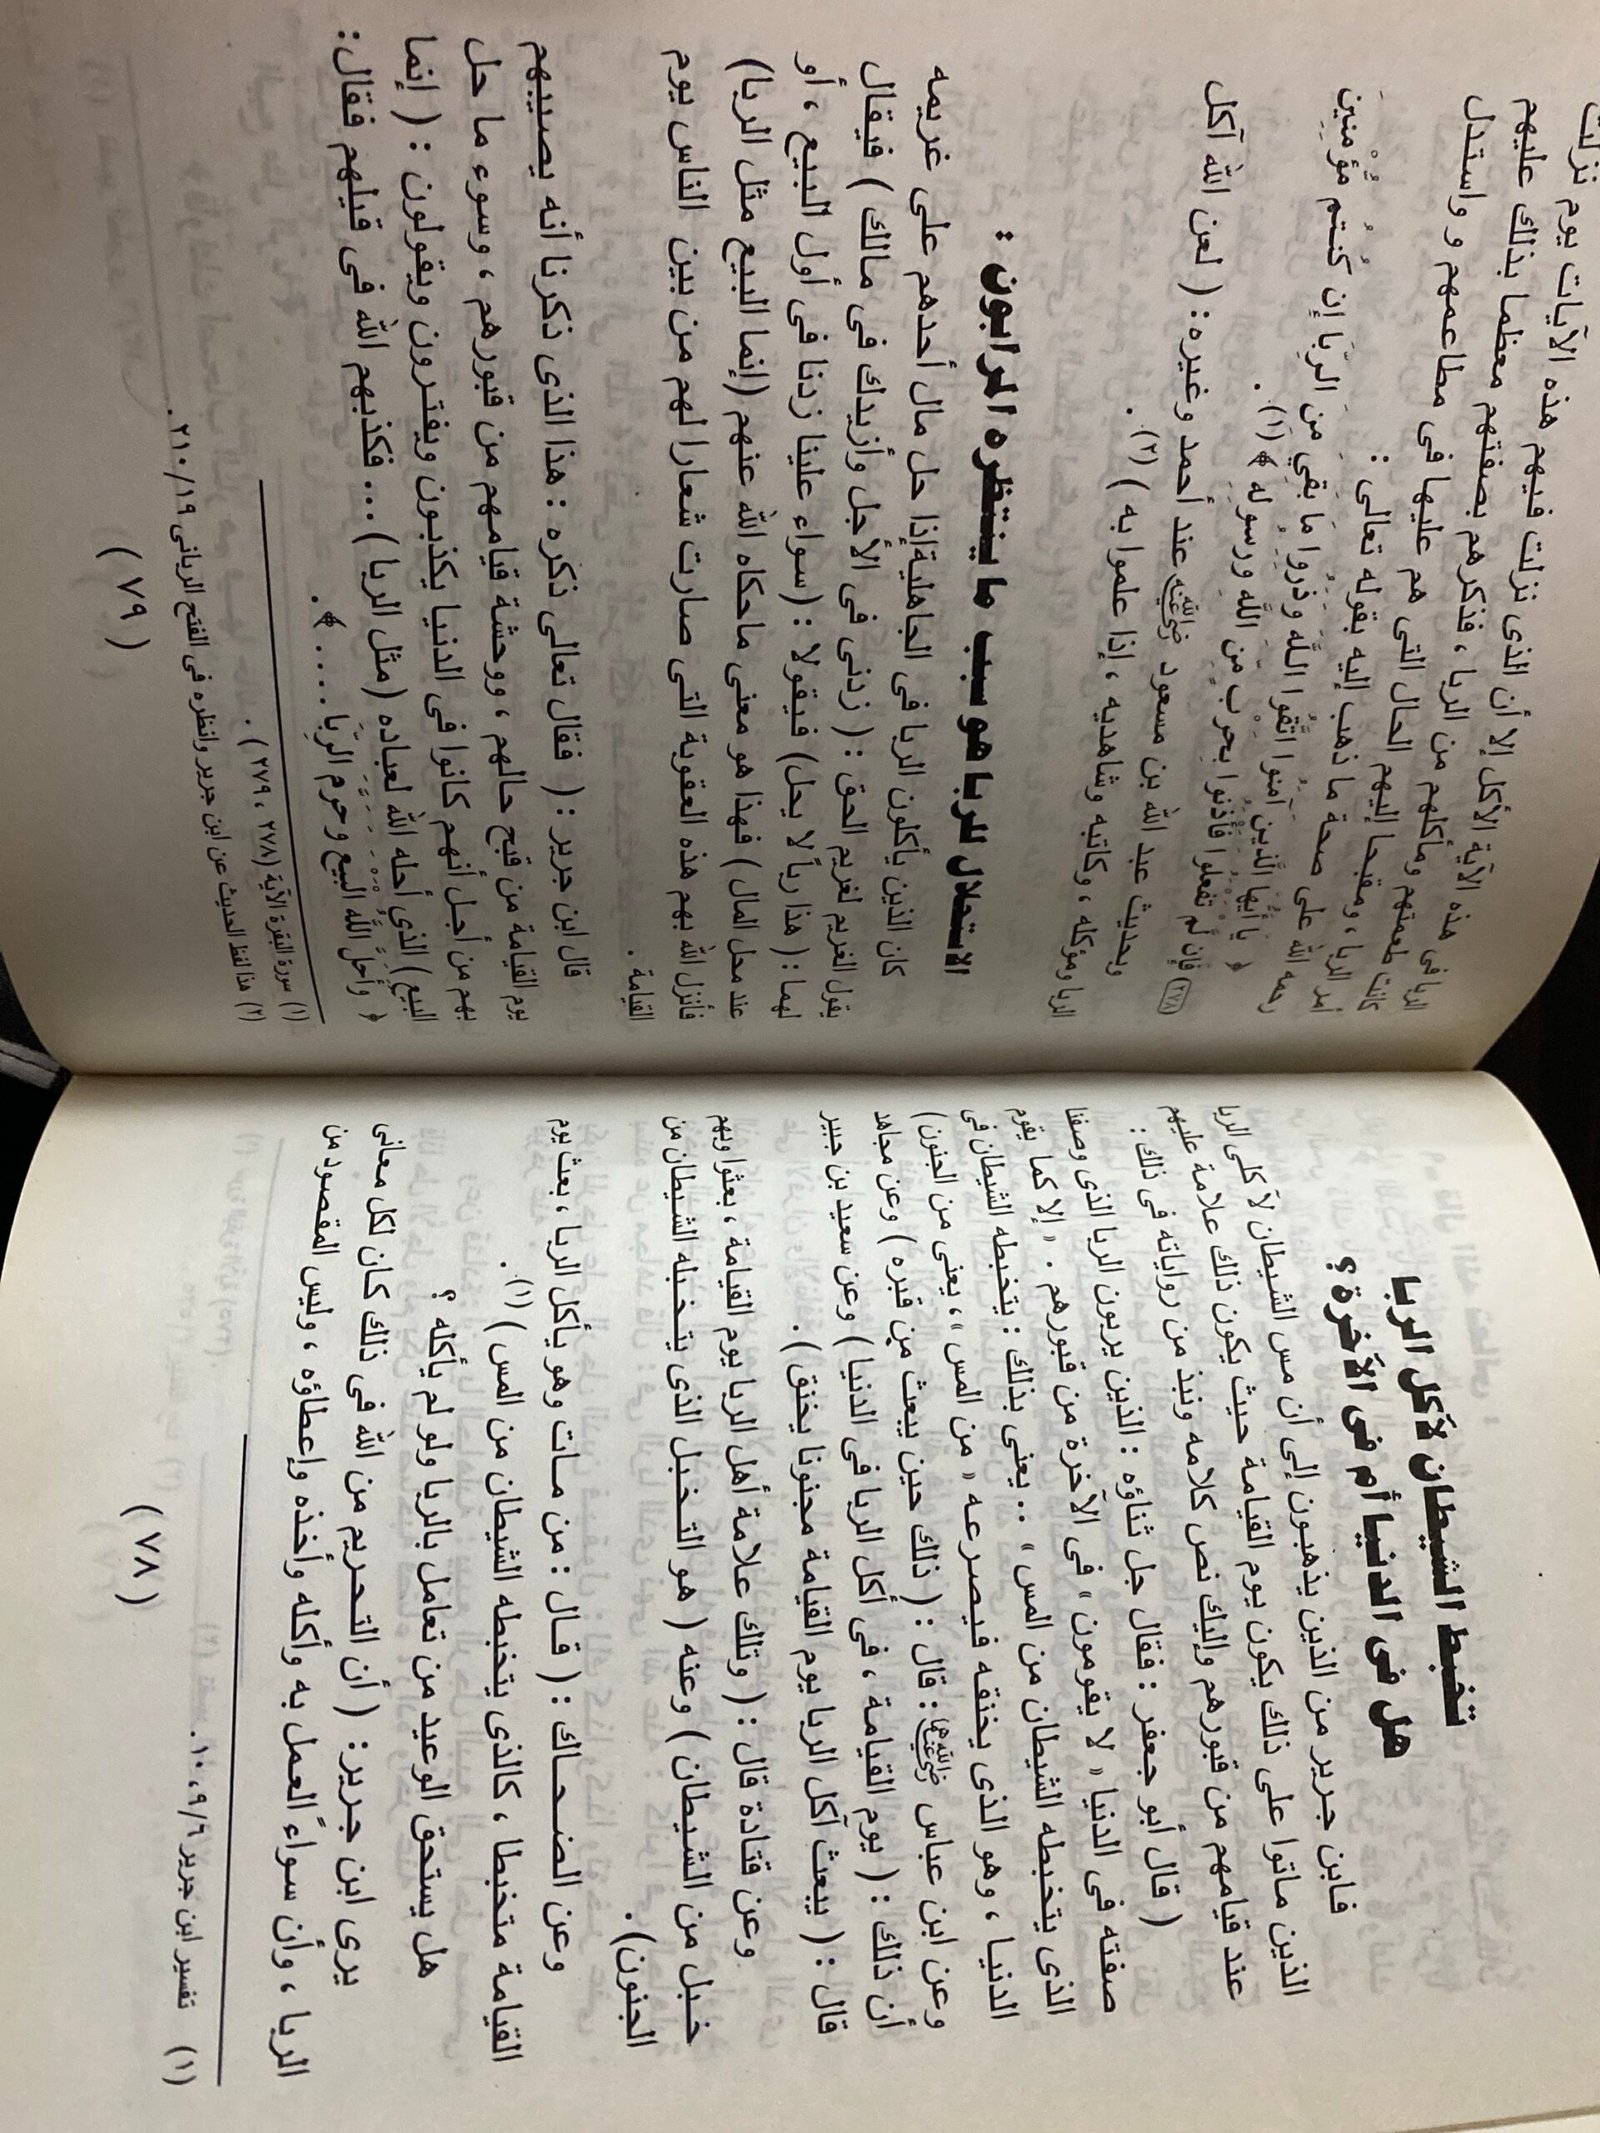 تخبط الشيطان لآكل الربا
هل فى الدنيا أم فى الآخرة ؟
فابن جرير من الذين يذهبون إلى أن مس الشيطان لآكلى الربا
الذين ماتوا على ذلك يكون يوم القيامة حيث يكون ذلك علامة عليهم
عند قيامهم من قبورهم وإليك نص كلامه ونبذ من رواياته فى ذلك :
( قال أبو جعفر : فقال جل ثناؤه : الذين يربون الربا الذى وصفنا
صفته فى الدنيا « لا يقومون » فى الآخرة من قبورهم . « إلا كما يقوم
الذى يتخبطه الشيطان من المس » .. يعنى بذلك : يتخبطه الشيطان فى
الدنيا ، وهو الذى يخنقه فيصرعه « من المس » ، يعنى من الجنون )
وعن ابن عباس رضي الله عنهما : قال : ( ذلك حين يبعث من قبره ) وعن مجاهد
أن ذلك : ( يوم القيامة ، فى أكل الربا فى الدنيا ) وعن سعيد بن جبير
قال : ( يبعث آكل الربا يوم القيامة مجنونا يخنق ) .
وعن قتادة قال : ( وتلك علامة أهل الربا يوم القيامة ، بعثوا وبهم
خبل من الشيطان ) وعنه ( هو التخبل الذى يتخبله الشيطان من
الجنون ) .
وعن الضحاك : ( قال : من مات وهو يأكل الربا ، بعث يوم
القيامة متخبطا ، كالذى يتخبطه الشيطان من المس ) (١) .
هل يستحق الوعيد من تعامل بالربا ولو لم يأكله ؟
يرى ابن جرير : ( أن التحريم من الله فى ذلك كان لكل معانى
الربا ، وأن سواءً العمل به وأكله وأخذه وإعطاؤه ، وليس المقصود من
(١) تفسير ابن جرير ٩/٦ ، ١٠ .
( ٧٨ )
الربا فى هذه الآية الأكل إلا أن الذى نزلت فيهم هذه الآيات يوم نزلت
كانت طعمتهم ومأكلهم من الربا ، فذكرهم بصفتهم معظما بذلك عليهم
أمر الربا ، ومقبحا إليهم الحال التى هم عليها فى مطاعمهم و واستدل
رحمه الله على صحة ما ذهب إليه بقوله تعالى :
﴿ يَا أَيُّهَا الَّذِينَ آمَنُوا اتَّقُوا اللَّهَ وَذَرُوا مَا بَقِيَ مِنَ الرِّبَا إِن كُنتُم مُّؤْمِنِينَ
(٢٧٨) فَإِن لَّمْ تَفْعَلُوا فَأْذَنُوا بِحَرْبٍ مِّنَ اللَّهِ وَرَسُولِهِ ﴾ (١) .
وبحديث عبد الله بن مسعود رضي الله عنه عند أحمد وغيره : ( لعن الله آكل
الربا ومؤكله ، وكاتبه وشاهديه ، إذا علموا به ) (٢) .
الاستحلال للربا هو سبب ما ينتظره المرابون :
كان الذين يأكلون الربا فى الجاهلية إذا حل مال أحدهم على غريمه
يقول الغريم لغريم الحق : ( زدنى فى الأجل وأزيدك فى مالك ) فيقال
لهما : ( هذا رباً لا يحل ) فيقولا : ( سواء علينا زدنا فى أول البيع ، أو
عند محل المال ) فهذا هو معنى ماحكاه الله عنهم (إنما البيع مثل الربا)
فأنزل الله بهم هذه العقوبة التى صارت شعارا لهم من بين الناس يوم
القيامة .
قال ابن جرير : ( فقال تعالى ذكره : هذا الذى ذكرنا أنه يصيبهم
يوم القيامة من قبح حالهم ، ووحشة قيامهم من قبورهم ، وسوء ما حل
بهم من أجل أنهم كانوا فى الدنيا يكذبون ويفترون ويقولون : ( إنما
البيع ) الذى أحله الله لعباده (مثل الربا) ... فكذبهم الله فى قيلهم فقال :
﴿ وَأَحَلَّ اللَّهُ الْبَيْعَ وَحَرَّمَ الرِّبَا .... ﴾ .
(١) سورة البقرة الآية (٢٧٨ ، ٢٧٩) .
(٢) هذا لفظ الحديث عن ابن جرير وانظره فى الفتح الربانى ٢١٠/١٩ .
( ٧٩ )